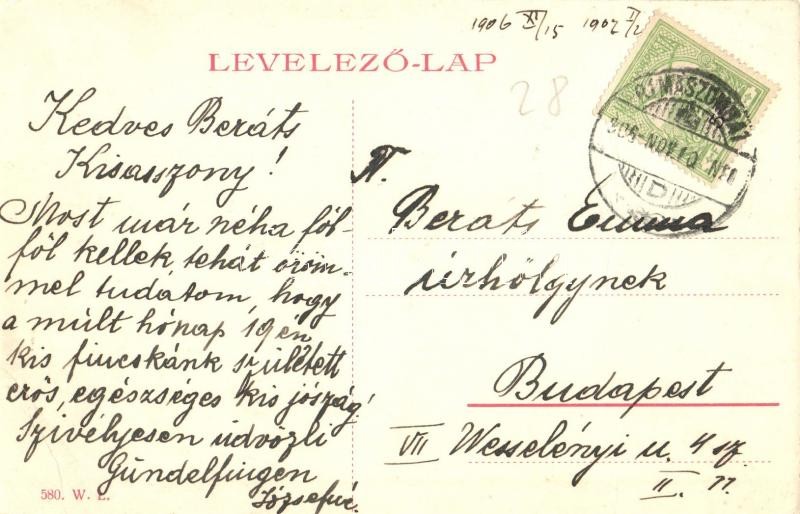 1906 XI/15 1907 I/2
LEVELEZŐ-LAP
28
RIMASZOMBAT
906 NOV 10 N
D
Kedves Beráts
Kisasszony!
Most már néha föl-
föl kellek tehát öröm-
mel tudatom, hogy
a múlt hónap 19 én
kis fiucskánk született
erős, egészséges kis jószág!
Szivélyesen üdvözli
Gündelfingen
Józsefné.
N.
Beráts Emma
úrhölgynek
Budapest
VII Wesselényi u. 4 sz.
II. 11.
580. W. L.